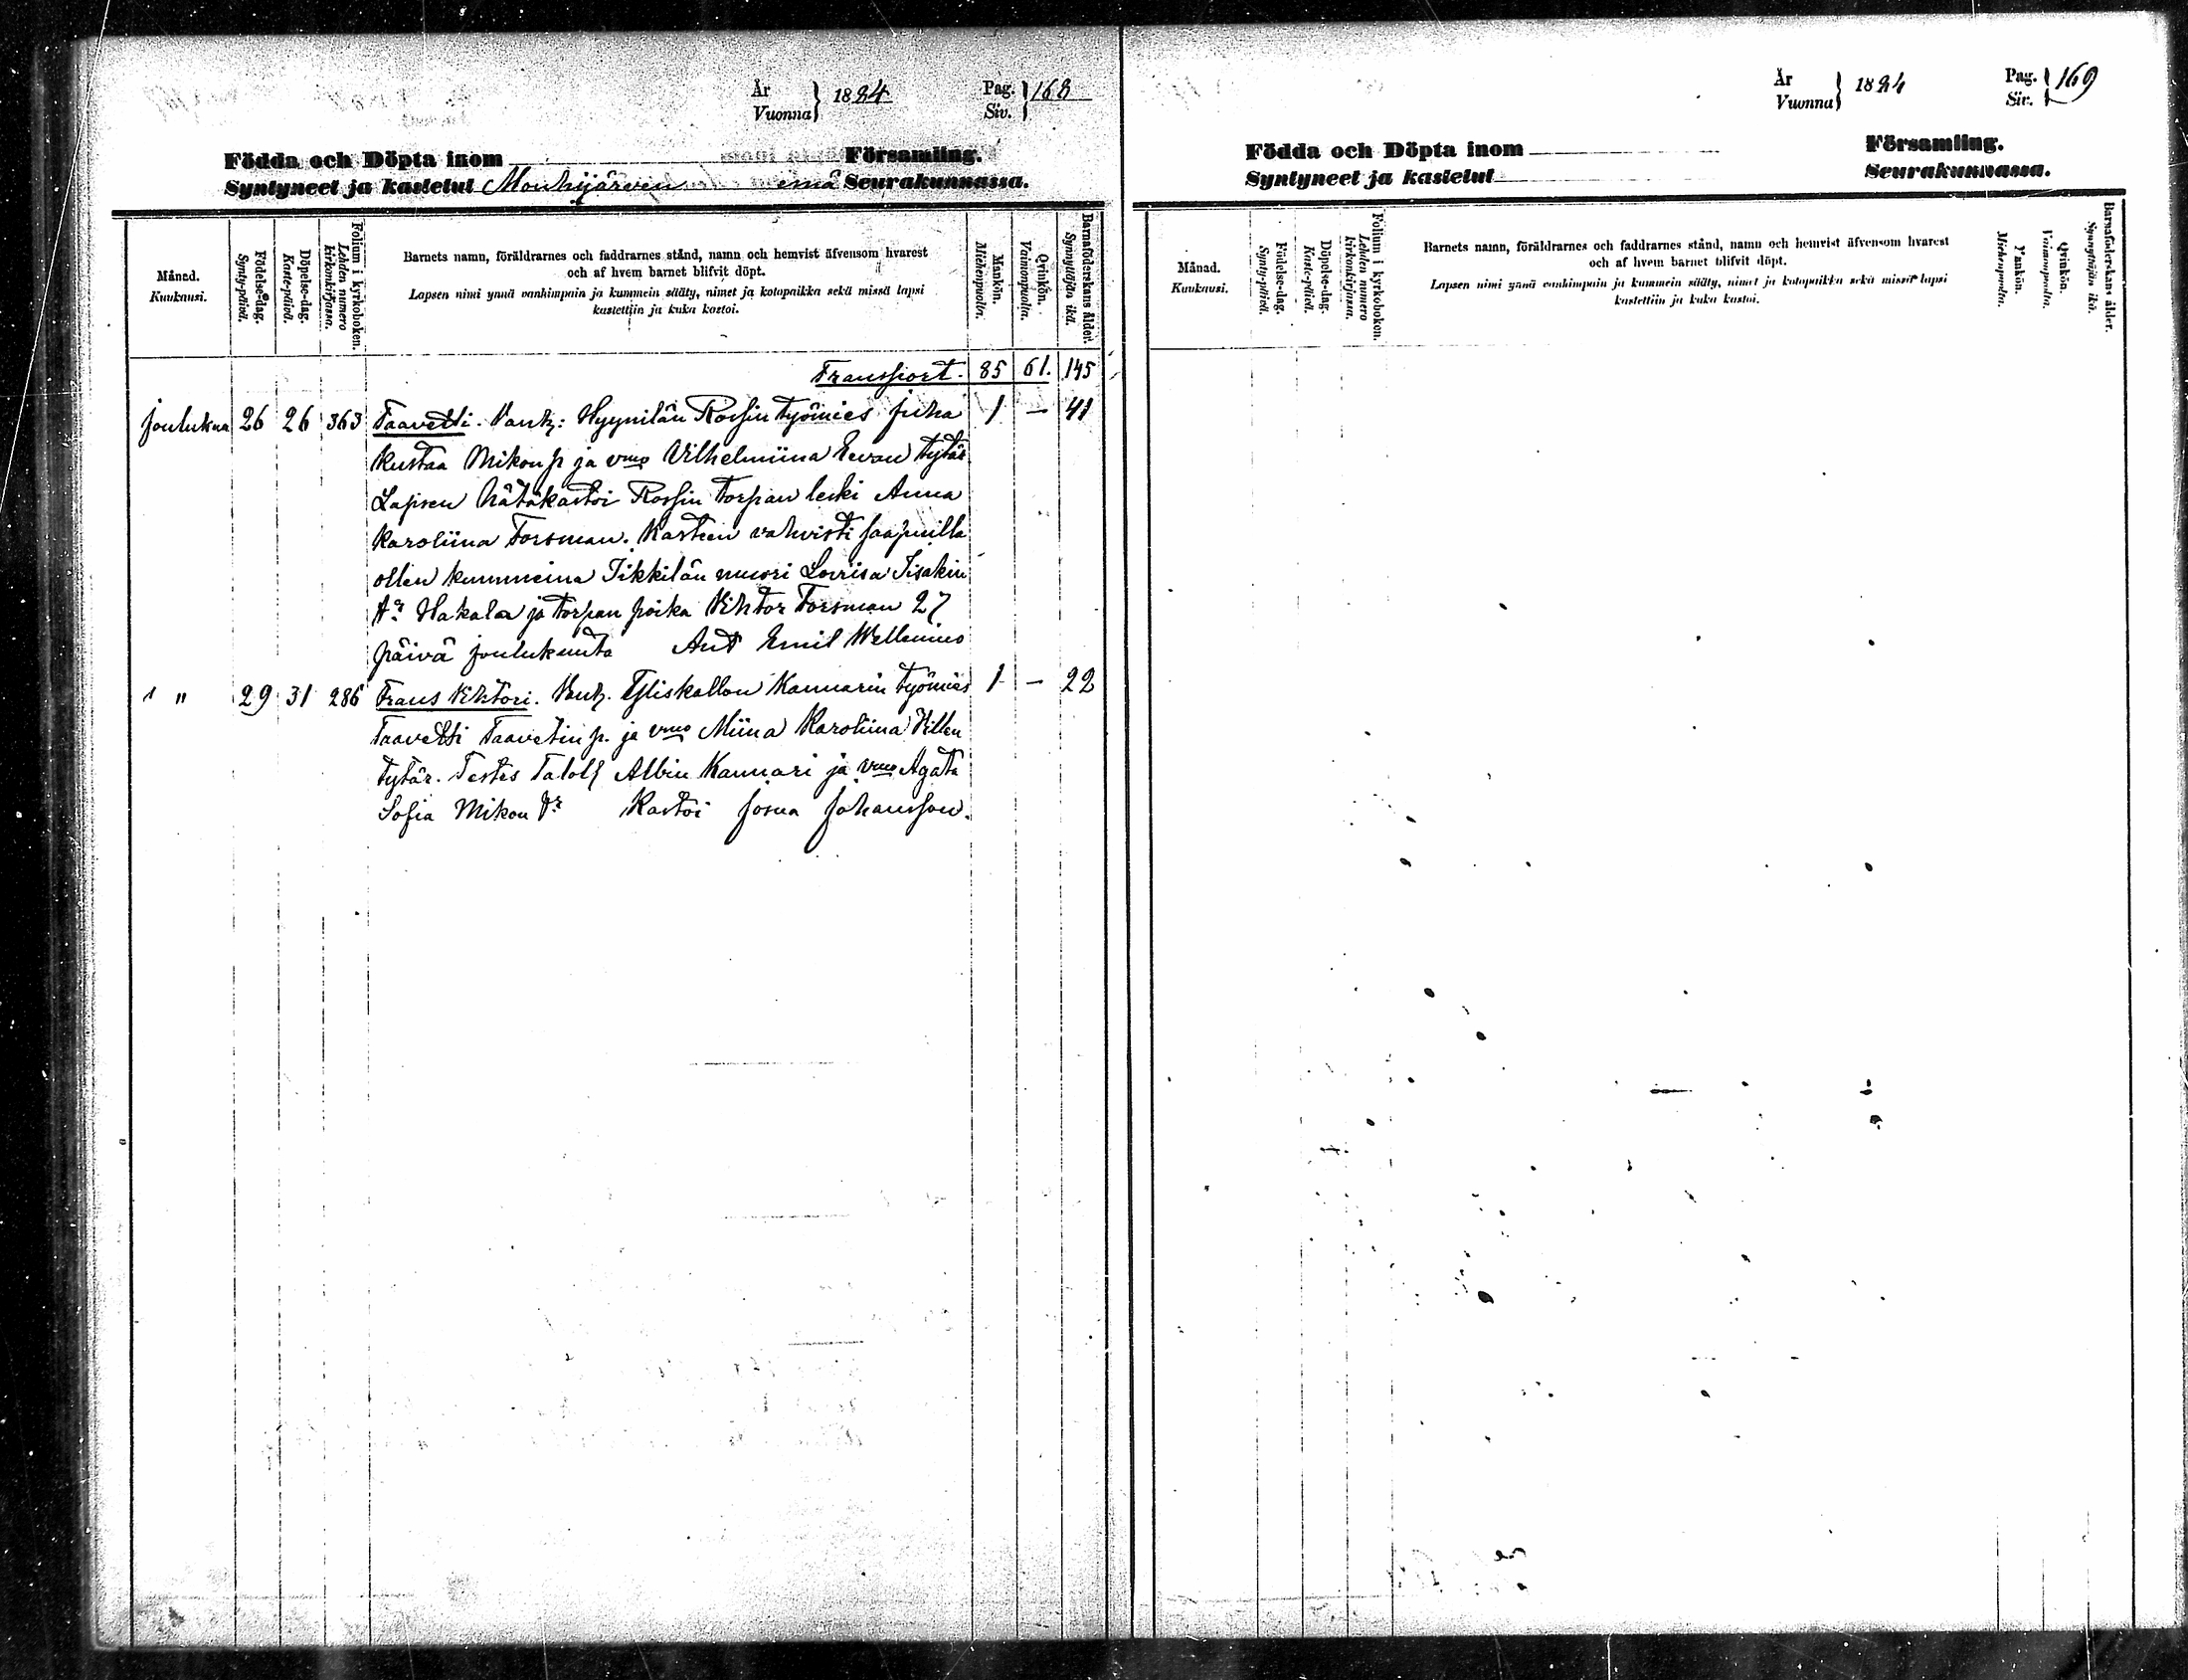 År Vuonna } 1884 Pag. Siv. } 168
Födda och Döpta inom Församling.
Syntyneet ja kastetut Mouhijärven emä Seurakunnassa.
Månad. Kuukausi.
Födelse-dag. Synty-päivä.
Döpelse-dag. Kaste-päivä.
Folium i kyrkoboken. Lehden numero kirkonkirjassa.
Barnets namn, föräldrarnes och faddrarnes stånd, namn och hemvist äfvensom hvarest
och af hvem barnet blifvit döpt.
Lapsen nimi ynnä vanhimpain ja kummein sääty, nimet ja kotopaikka sekä missä lapsi
kastettiin ja kuka kastoi.
Mankön. Miehenpuolia.
Qvinkön. Vaimonpuolia.
Barnaföderskans ålder. Synnyttäjän ikä.
Transport. 85 61. 145
Joulukuu 26 26 363 Taavetti. Vanh: Hyynilän Rossin työmies Juha 1 — 41
Kustaa Mikon p ja vmo Vilhelmiina Eevan tytär
Lapsen hätäkastoi Rossin torpan leski Anna
Karoliina Forsman. Kasteen vahvisti saapuilla
ollen kummeina Tikkilän muori Lovisa Iisakin
tr Hakala ja torpan poika Vihtor Forsman 27
päivä joulukuuta Ant Emil Wellenius
" " 29 31 286 Frans Vihtori. Vanh. Yliskallon Kannarin työmies 1 — 22
Taavetti Taavetin p. ja vmo Miina Karoliina Villen
tytär. Testes Taloll Albin Kannari ja vmo Agata
Sofia Mikon tr Kastoi Josua Johansson.
År Vuonna } 1884 Pag. Siv. } 169
Födda och Döpta inom Församling.
Syntyneet ja kastetut Seurakunnassa.
Månad. Kuukausi.
Födelse-dag. Synty-päivä.
Döpelse-dag. Kaste-päivä.
Folium i kyrkoboken. Lehden numero kirkonkirjassa.
Barnets namn, föräldrarnes och faddrarnes stånd, namn och hemvist äfvensom hvarest
och af hvem barnet blifvit döpt.
Lapsen nimi ynnä vanhimpain ja kummein sääty, nimet ja kotopaikka sekä missä lapsi
kastettiin ja kuka kastoi.
Mankön. Miehenpuolia.
Qvinkön. Vaimonpuolia.
Barnaföderskans ålder. Synnyttäjän ikä.